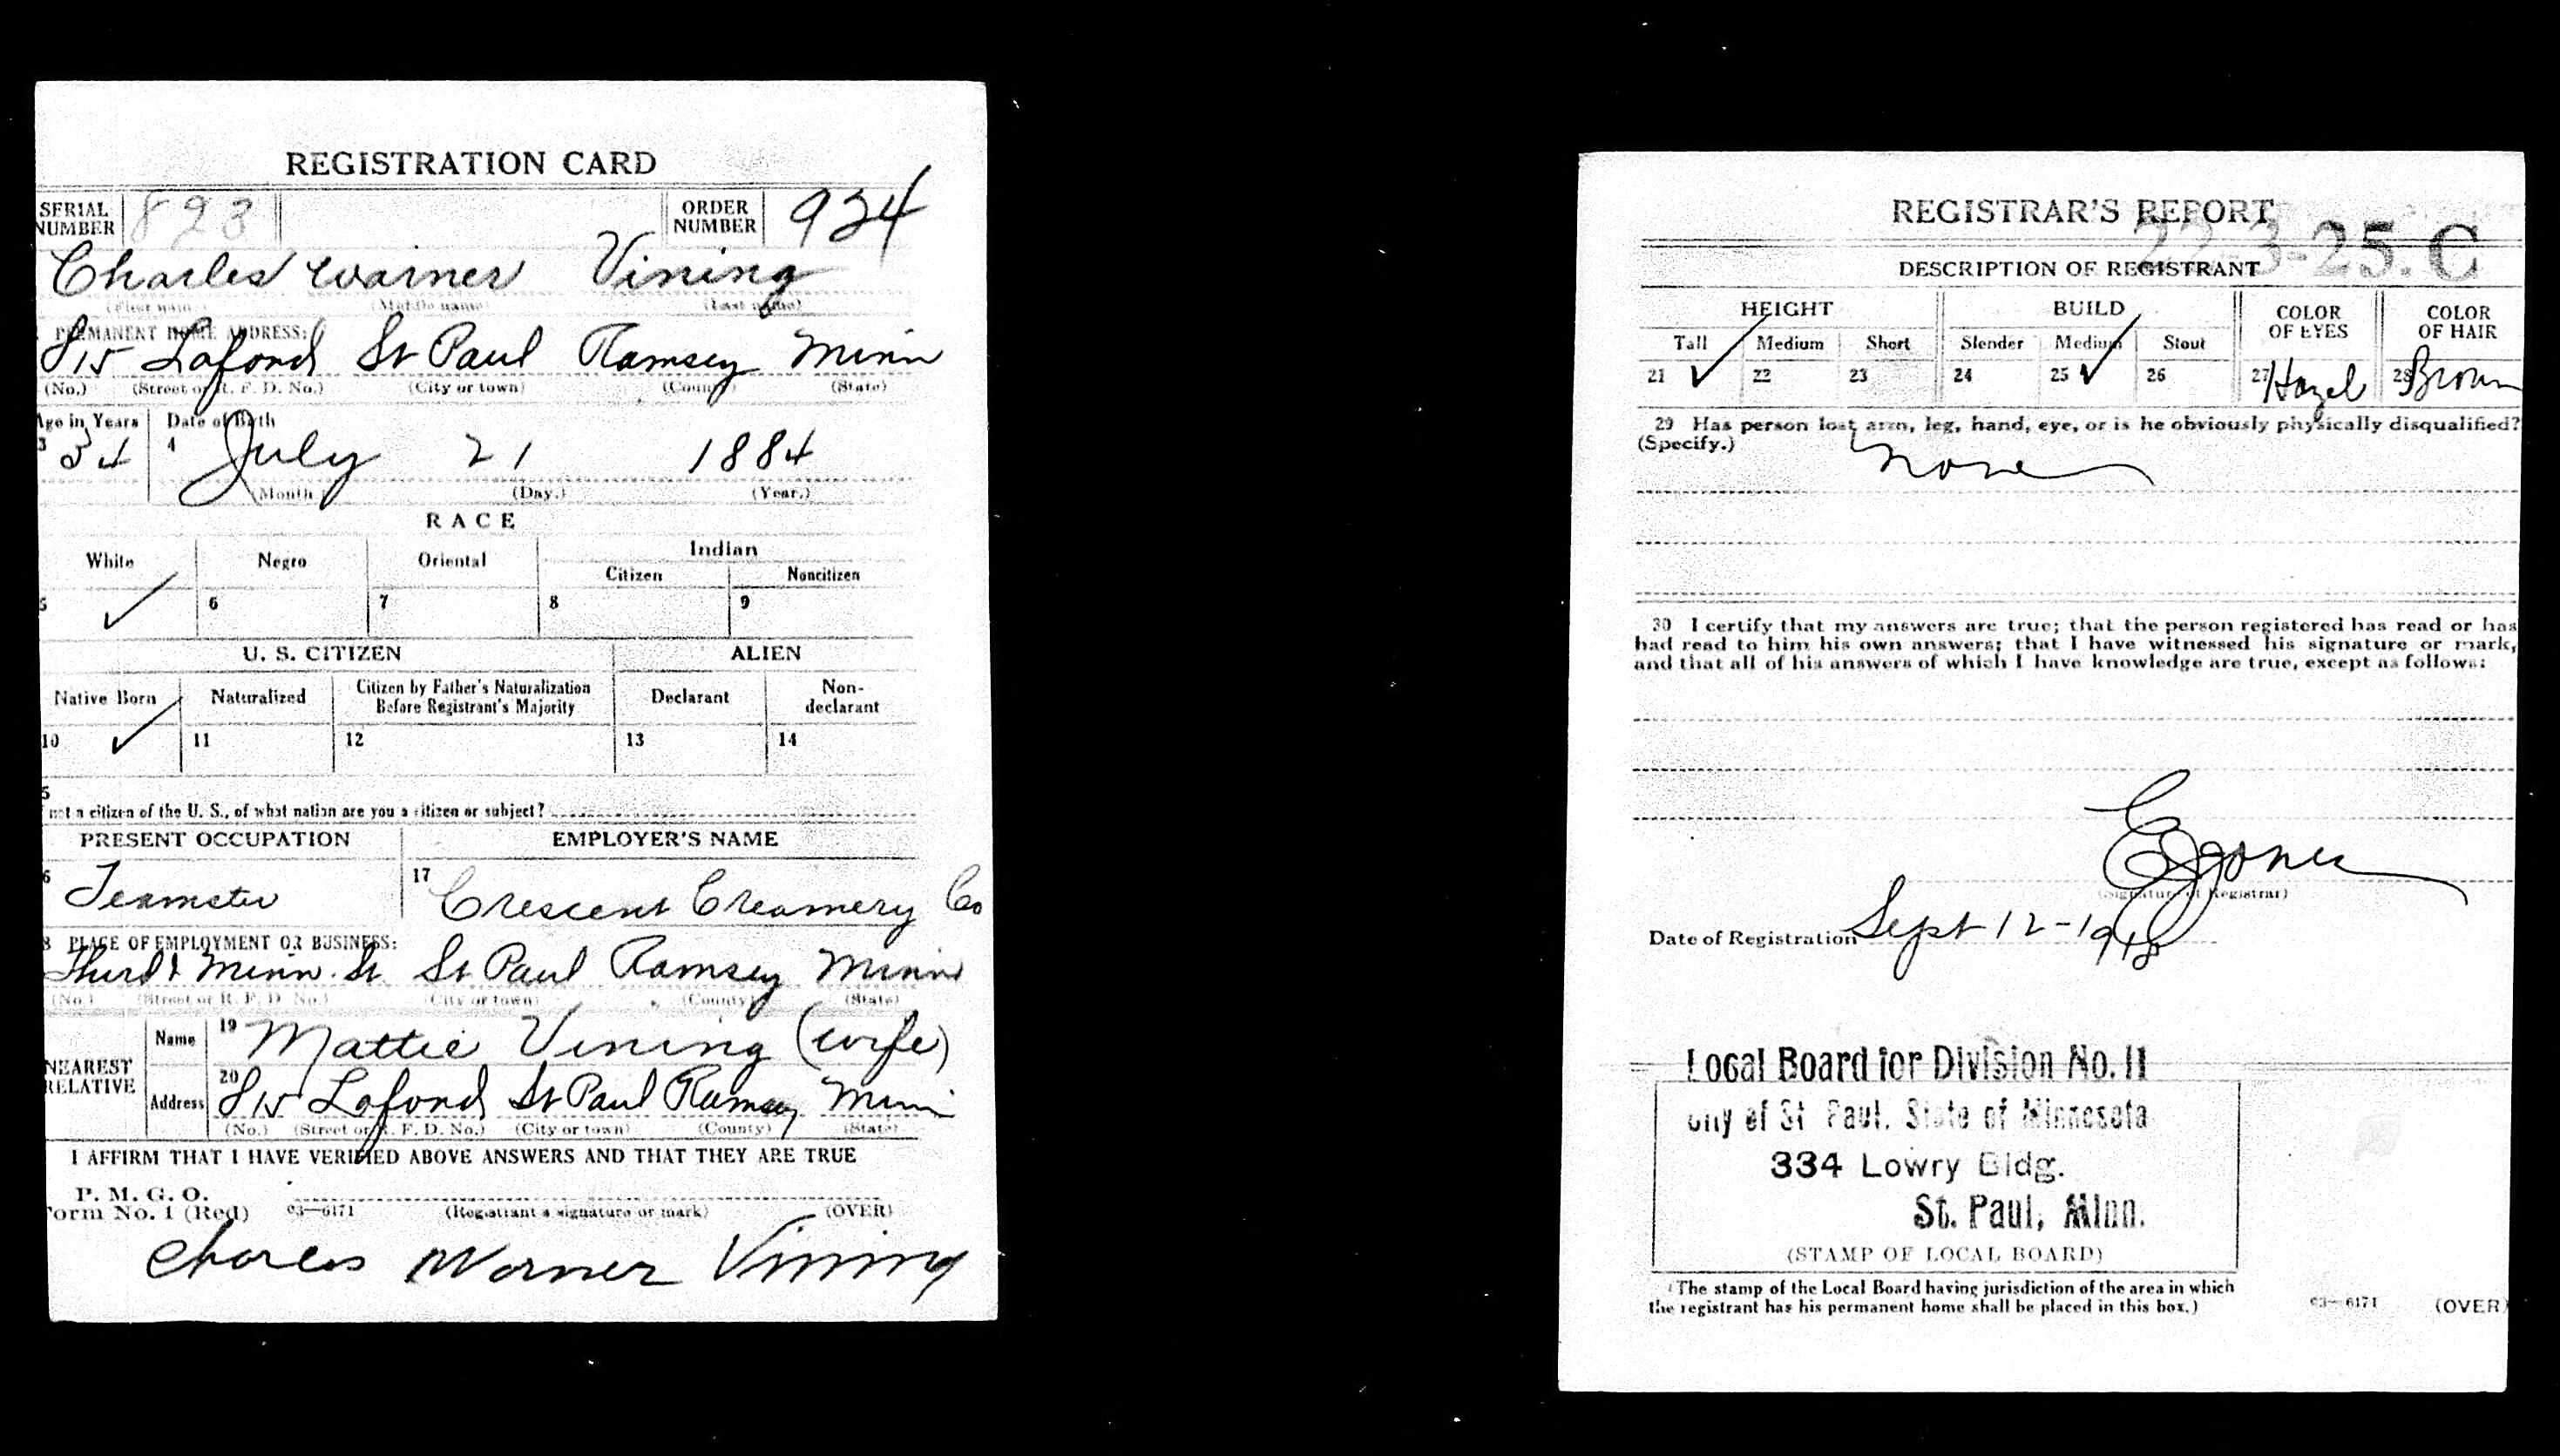 REGISTRATION CARD
SERIAL NUMBER 893 ORDER NUMBER 924
Charles Warner Vining
(First name) (Middle name) (Last name)
PERMANENT HOME ADDRESS:
815 Lafond St Paul Ramsey Minn
(No.) (Street or R. F. D. No.) (City or town) (County) (State)
Age in Years Date of Birth
3 34 4 July 21 1884
(Month.) (Day.) (Year.)
RACE
White Negro Oriental Indian
Citizen Noncitizen
5 ✓ 6 7 8 9
U. S. CITIZEN ALIEN
Native Born Naturalized Citizen by Father's Naturalization Before Registrant's Majority Declarant Non-declarant
10 ✓ 11 12 13 14
5
not a citizen of the U. S., of what nation are you a citizen or subject?
PRESENT OCCUPATION EMPLOYER'S NAME
6 Teamster 17 Crescent Creamery Co
8 PLACE OF EMPLOYMENT OR BUSINESS:
Third & Minn. St. St Paul Ramsey Minn
(No.) (Street or R. F. D. No.) (City or town) (County) (State)
NEAREST RELATIVE Name 19 Mattie Vining (wife)
Address 20 815 Lafond St Paul Ramsey Minn
(No.) (Street or R. F. D. No.) (City or town) (County) (State)
I AFFIRM THAT I HAVE VERIFIED ABOVE ANSWERS AND THAT THEY ARE TRUE
P. M. G. O.
Form No. 1 (Red) 03—6171 (Registrant's signature or mark) (OVER)
Charles Warner Vining
REGISTRAR'S REPORT
22-3-25. C
DESCRIPTION OF REGISTRANT
HEIGHT BUILD COLOR OF EYES COLOR OF HAIR
Tall Medium Short Slender Medium Stout
21 ✓ 22 23 24 25 ✓ 26 27 Hazel 28 Brown
29 Has person lost arm, leg, hand, eye, or is he obviously physically disqualified?
(Specify.) none
30 I certify that my answers are true; that the person registered has read or has
had read to him his own answers; that I have witnessed his signature or mark,
and that all of his answers of which I have knowledge are true, except as follows:
(Signature of Registrar)
Date of Registration Sept 12-1918
Local Board for Division No. 11
City of St. Paul, State of Minnesota
334 Lowry Bldg.
St. Paul, Minn.
(STAMP OF LOCAL BOARD)
(The stamp of the Local Board having jurisdiction of the area in which
the registrant has his permanent home shall be placed in this box.)
03—6171 (OVER)